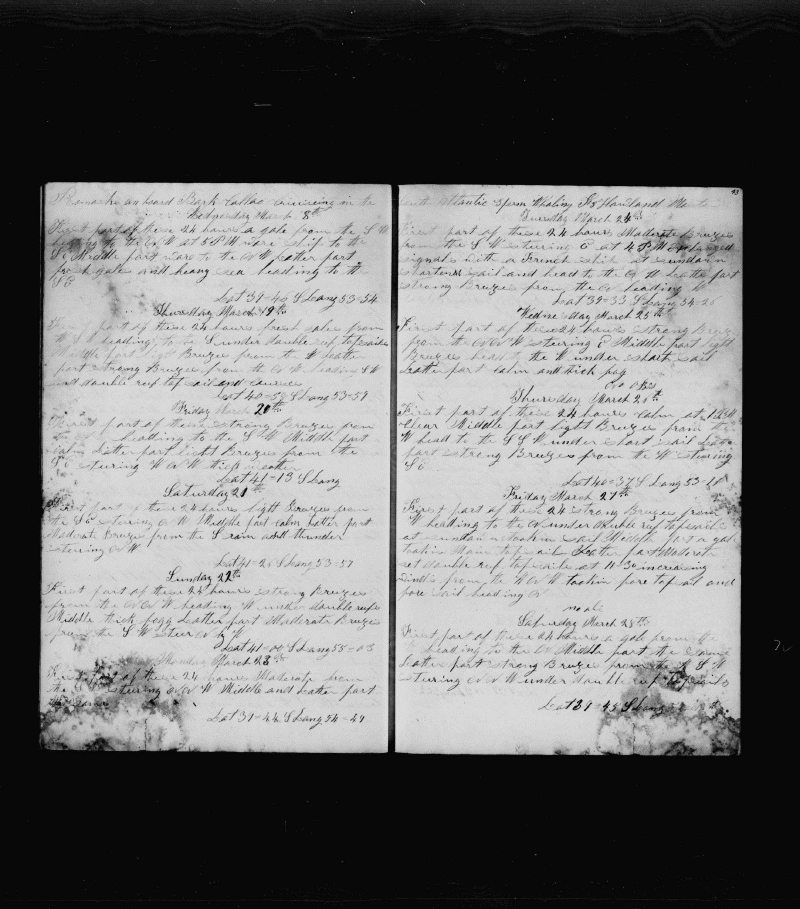 Remarks on board Bark Callao cruising in the
Wedgesday March 18th
First part of these 24 hours a gale from the S W
heading to the W at 5 P M ware ship to the
S E Middle part ware to the W Latter part
fresh gale and heavy sea heading to the
S E
Lat 39-40 S Lang 53-54
Thursday March 19th
First part of these 24 hours fresh gales from
the heading to S under double reef topsails
Middle part light Bruzes from the W Latter
part strong Bruzes from the W heading S W
under double reef topsail and courses
Lat 40-59 S Lang 53-59
Friday March 20th
First part of these strong Bruzes from
heading to the S W Middle part
calm Latter part light Bruzes from the
S E sturing W thick weather
Lat 41-13 S Lang
Saturday 21th
First part of these 24 hours light Bruzes from
the S E sturing W Middle part calm Latter part
Moderate Bruzes from the S rain and thunder
sturing N W
Lat 41-26 S Lang 53-57
Sunday 22th
First part of these 24 hours strong Bruzes
from the N W heading W under double reefs
Middle thick fogg Latter part Moderate Bruzes
from the S W stur N W
Lat 41-00 S Lang 55-03
Monday March 23th
First part of these 24 hours Moderate from
the sturing N W Middle and Latter part
the same
Lat 39-44 S Lang 54-49
93
South Atlantic Sperm Whaling Is Howland Master
Tuesday March 24th
First part of these 24 hours Moderate Bruzes
from the S W sturing E at 4 P M exchanged
signals with a French ship at sundown
shortened sail and head to the W Latte part
strong Bruzes from the W heading N
Lat 39-33 S Lang 54-25
Wednesday March 25th
First part of these 24 hours strong Bruzes
from the N W sturing E Middle part light
Bruzes head to the W under short sail
Latte part calm and thick fog
no obs
Thursday March 26th
First part of these 24 hours calm at 1 P M
clear Middle part light Bruzes from the
W head to the S S W under short sail Latte
part strong Bruzes from the W sturing
S E
Lat 40-37 S Lang 53-18
Friday March 27th
First part of these 24 strong Bruzes from
W heading to the N under double reef topsails
at sundown tookin sail Middle part a gale
tookin Main topsail Latter part Moderate
set double reef topsails at 11-30 increasing
winds from the W N W tookin fore topsail and
fore sail heading N
no obs
Saturday March 28th
First part of these 24 hours a gale from the
heading to the N Middle part the same
Latter part strong Bruzes from the W S W
sturing N W under double reef topsails
Lat 39-45 S Lang